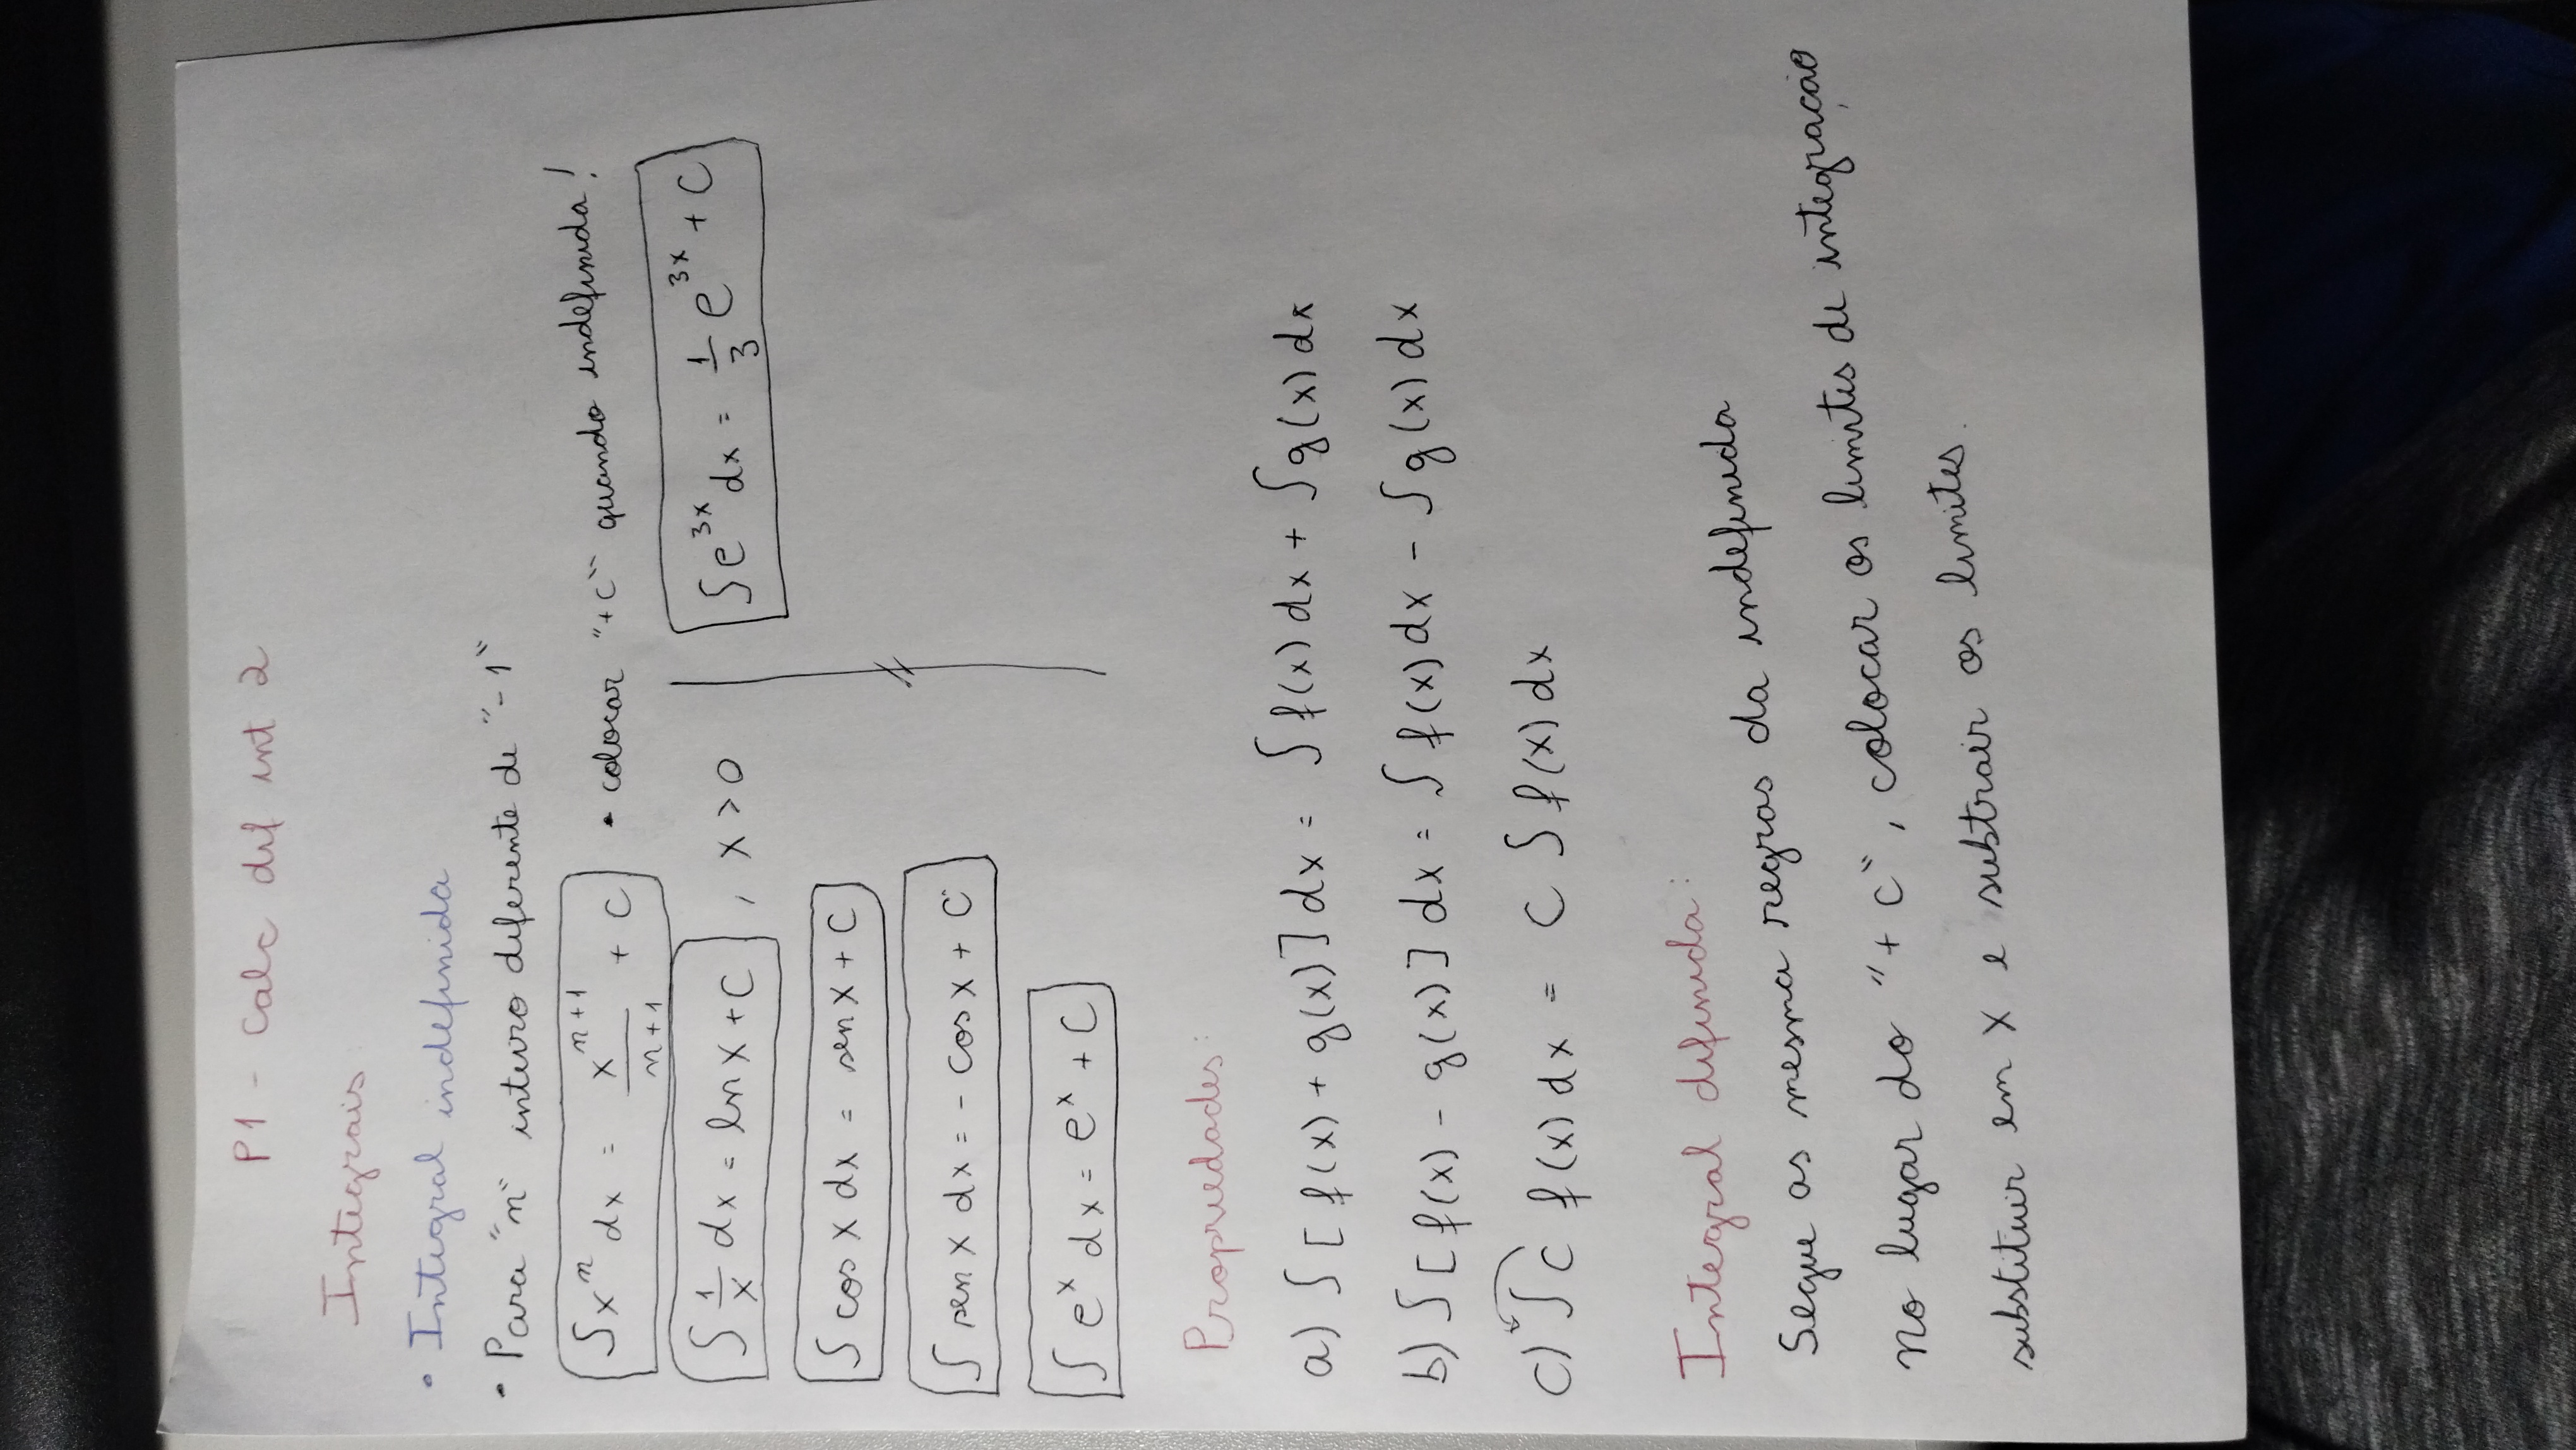 P1 - Calc dif int 2
Integrais
• Integral indefinida
• Para "n" inteiro diferente de "-1"
∫x^n dx = x^(n+1)/(n+1) + C • colocar "+C" quando indefinida!
∫ 1/x dx = ln x + C , x > 0
∫e^(3x) dx = 1/3 e^(3x) + C
∫ cos x dx = sen x + C
∫ sen x dx = - cos x + C
∫ e^x dx = e^x + C
Propriedades:
a) ∫ [f(x) + g(x)] dx = ∫ f(x) dx + ∫ g(x) dx
b) ∫ [f(x) - g(x)] dx = ∫ f(x) dx - ∫ g(x) dx
c) ∫ C f(x) dx = C ∫ f(x) dx
Integral definida:
Segue as mesma regras da indefinida
No lugar do "+ C", colocar os limites de integração
substituir em x e subtrair os limites.